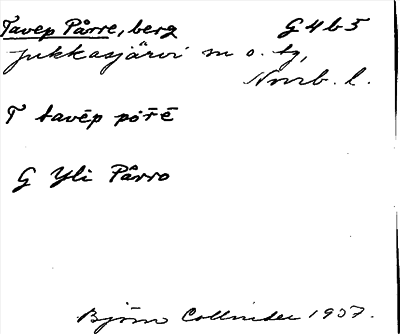 Tavep Pårre, berg G4b5
Jukkasjärvi sn o. tg,
Norrb. l.
T tavēp pɔ́r̄ē
G Yli Pårro
Björn Collinder 1937.